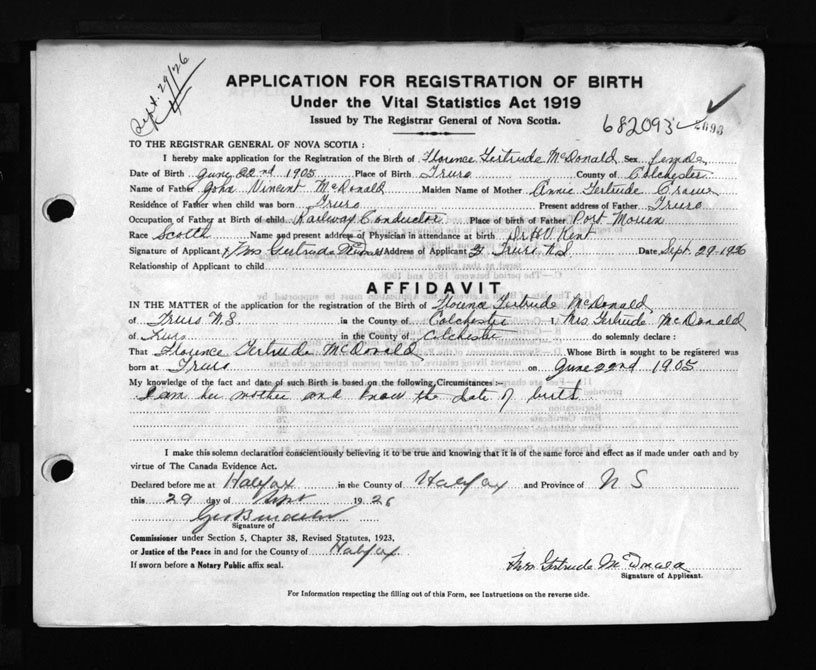 Sept. 29/26
APPLICATION FOR REGISTRATION OF BIRTH
Under the Vital Statistics Act 1919
Issued by The Registrar General of Nova Scotia.
682093
TO THE REGISTRAR GENERAL OF NOVA SCOTIA:
I hereby make application for the Registration of the Birth of Florence Gertrude McDonald Sex female
Date of Birth June 22nd 1905 Place of Birth Truro County of Colchester
Name of Father John Vincent McDonald Maiden Name of Mother Annie Gertrude
Residence of Father when child was born Truro Present address of Father Truro
Occupation of Father at Birth of child Railway Conductor Place of birth of Father Port
Race Scotch Name and present address of Physician in attendance at birth Dr Kent
Signature of Applicant Mrs Gertrude McDonald Address of Applicant Truro N.S Date Sept 29-1926
Relationship of Applicant to child
AFFIDAVIT
IN THE MATTER of the application for the registration of the Birth of Florence Gertrude McDonald
of Truro N.S in the County of Colchester I, Mrs Gertrude McDonald
of Truro in the County of Colchester do solemnly declare :
That Florence Gertrude McDonald Whose Birth is sought to be registered was
born at Truro on June 22nd 1905
My knowledge of the fact and date of such Birth is based on the following Circumstances :-
I am her mother and know the date of birth
I make this solemn declaration conscientiously believing it to be true and knowing that it is of the same force and effect as if made under oath and by
virtue of The Canada Evidence Act.
Declared before me at Halifax in the County of Halifax and Province of N S
this 29 day of Sept 1926
Signature of
Commissioner under Section 5, Chapter 38, Revised Statutes, 1923,
or Justice of the Peace in and for the County of Halifax.
If sworn before a Notary Public affix seal.
Mrs Gertrude McDonald
Signature of Applicant.
For Information respecting the filling out of this Form, see Instructions on the reverse side.